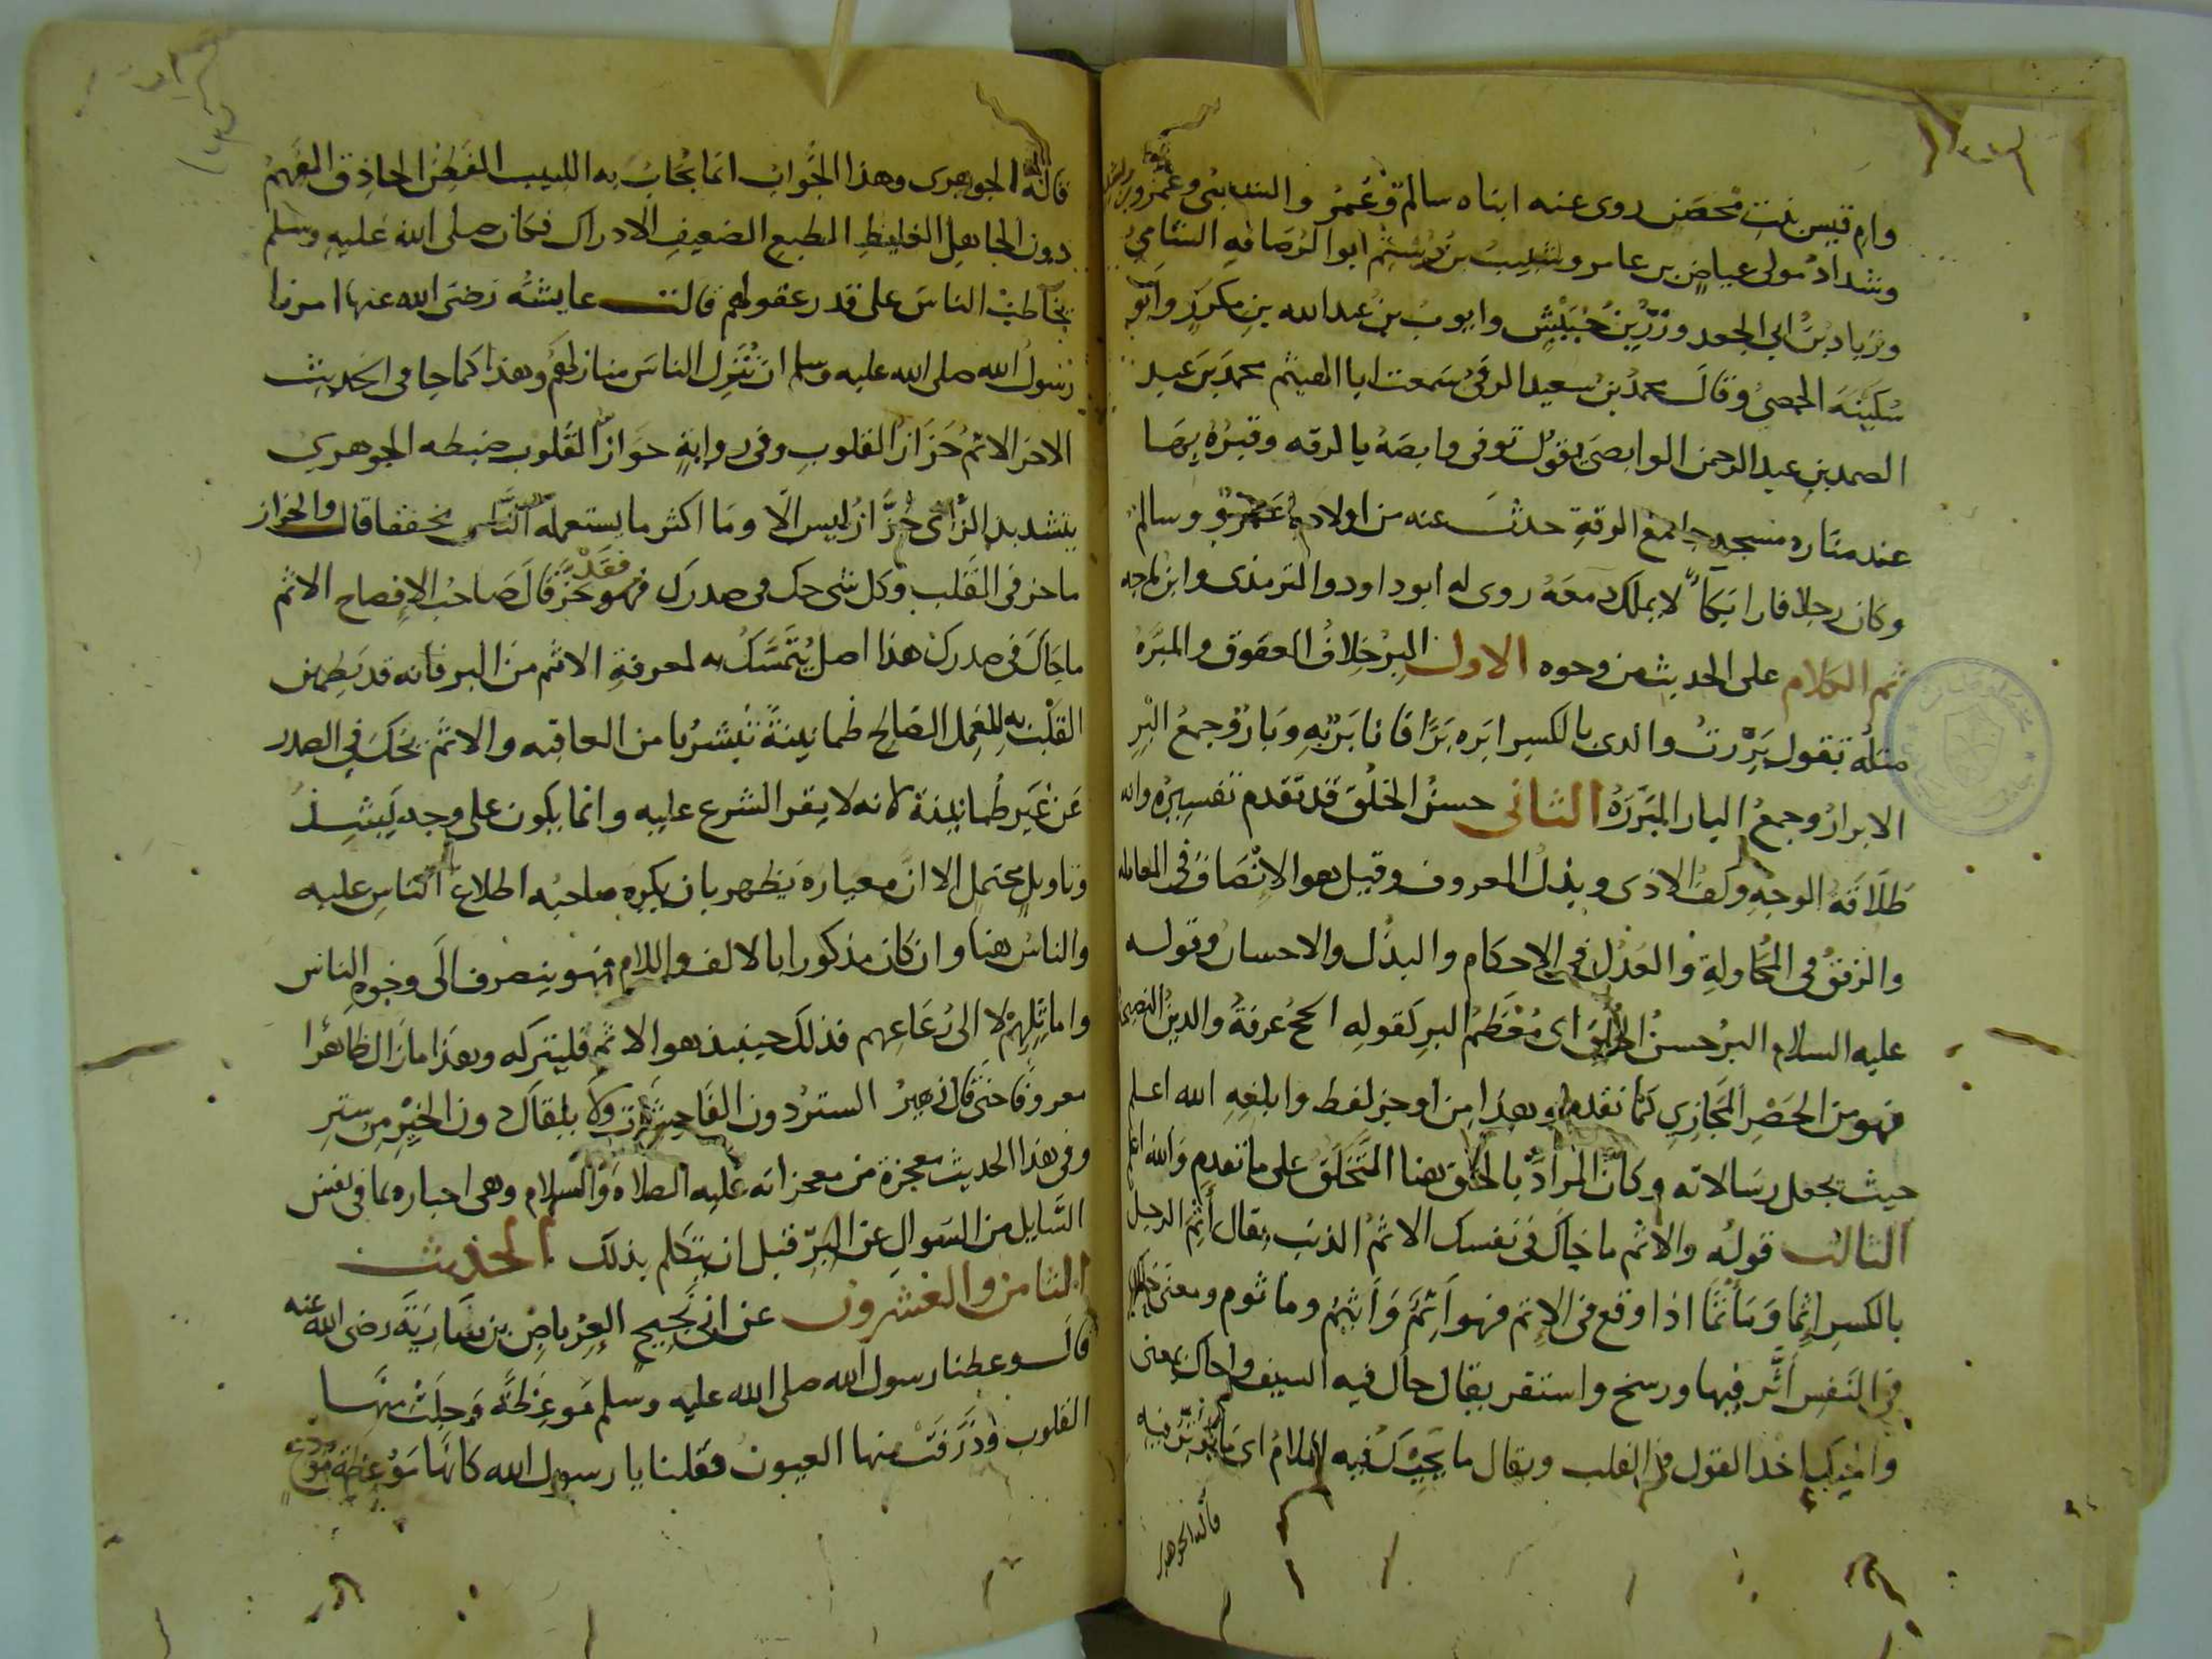 وام قيس بنت محصن روى عنه ابناه سالم وعمرو والشعبي وعمرو بن
وشداد مولى عياض بن عامر وشبيب بن رستم ابو الرصافة الشامي
وزياد بن ابي الجعد وزر بن حبيش وايوب بن عبدالله بن مكرز وابو
سكينة الحمصي وقال محمد بن سعيد الرقي سمعت ابا الهيثم محمد بن عبد
الصمد بن عبد الرحمن الوابصي يقول توفي وابصة بالرقه وقبره بها
عند مناره مسجد جامع الرقة حدث عنه من اولاده عمرو وسالم
وكان رجلا قارا بكآ لا يملك دمعه روى له ابو داود والترمذي وابن ماجه
ثم الكلام على الحديث من وجوه الاول البر خلاف العقوق والمبره
مثله تقول بررت والدي بالكسر ابره برا فانا بر به وبار وجمع البر
الابرار وجمع البار البررة الثاني حسن الخلق قد تقدم تفسيره وانه
طلاقة الوجه وكف الاذى وبذل المعروف وقيل هو الانصاف في المعامله
والرفق في المحاولة والعدل في الاحكام والبذل والاحسان وقوله
عليه السلام البر حسن الخلق اي معظم البر كقوله الحج عرفة والدين النصيحة
فهو من الحصر المجازي كما تقدم وهذا من اوجز لفظ وابلغه الله اعلم
حيث يجعل رسالاته وكان المراد بالخلق هنا التخلق على ما تقدم والله اعلم
الثالث قوله والاثم ما حاك في نفسك الاثم الذنب يقال أثم الرجل
بالكسر إثما ومأثما اذا وقع في الاثم فهو آثم وأثيم وماثوم ومعنى حاك
في النفس أثر فيها ورسخ واستقر يقال حاك فيه السيف واحاك بمعنى
والحيك اخذ القول في القلب ويقال ما يحيك فيه الملام اي ما يؤثر فيه
قاله الجوهري
قاله الجوهرى وهذا الجواب انما يجاب به اللبيب الفطن الحاذق الفهم
دون الجاهل الغليظ الطبع الضعيف الادراك فكان صلى الله عليه وسلم
يخاطب الناس على قدر عقولهم قالت عايشة رضى الله عنها امرنا
رسول الله صلى الله عليه وسلم ان ننزل الناس منازلهم وهذا كما جا فى الحديث
الاخر الاثم حزاز القلوب وفى رواية حواز القلوب ضبطه الجوهري
بتشديد الزاى حزاز ليس الا وما اكثر ما يستعمله الناس مخففا قال والحزاز
ما حز فى القلب وكل شى حك فى صدرك فقد حز فهو حز قال صاحب الافصاح الاثم
ما حاك في صدرك هذا اصل يتمسك به لمعرفة الاثم من البر فانه قد يطمئن
القلب به للعمل الصالح طمانينة تبشر بامن العاقبه والاثم يحك في الصدر
عن غير طمانينة لانه لا يقر الشرع عليه وانما يكون على وجه يشذ
وتاويل محتمل الا ان معياره يظهر بان يكره صاحبه اطلاع الناس عليه
والناس هنا وان كان مذكورا بالالف واللام فهو ينصرف الى وجوه الناس
واماثلهم لا الى رعاعهم فذلك حينئذ هو الاثم فليتركه وهذا ما زال ظاهرا
معروفا حتى قال زهير الستر دون الفاحشات ولا يلقاك دون الخير من ستر
وفى هذا الحديث معجزة من معجزاته عليه الصلاة والسلام وهى اخباره بما فى نفس
السايل من السوال عن البر قبل ان يتكلم بذلك الحديث
الثامن والعشرون عن ابي نجيح العرباض بن سارية رضى الله عنه
قال وعظنا رسول الله صلى الله عليه وسلم موعظة وجلت منها
القلوب وذرفت منها العيون فقلنا يا رسول الله كانها موعظة مودع